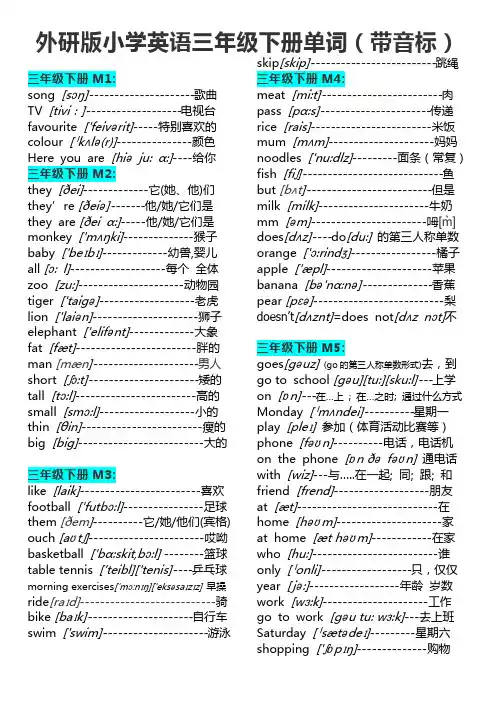 外研版小学英语三年级下册单词（带音标）
三年级下册 M1:
song [sɔŋ]---------------------歌曲
TV [tivi：]-------------------电视台
favourite ['feivərit]-----特别喜欢的
colour ['kʌlə(r)]---------------颜色
Here you are [hiə ju: ɑ:]----给你
三年级下册 M2:
they [ðei]-------------它(她、他)们
they’re [ðeiə]-------他/她/它们是
they are [ðei ɑ:]-----他/她/它们是
monkey ['mʌŋki]--------------猴子
baby ['beɪbɪ]-------------幼兽,婴儿
all [ɔ: l]-------------------每个 全体
zoo [zu:]---------------------动物园
tiger ['taigə]-------------------老虎
lion ['laiən]---------------------狮子
elephant ['elifənt]-------------大象
fat [fæt]------------------------胖的
man [mæn]---------------------男人
short [ʃɔ:t]----------------------矮的
tall [tɔ:l]------------------------高的
small [smɔ:l]-------------------小的
thin [θin]------------------------瘦的
big [big]-------------------------大的
三年级下册 M3:
like [laik]------------------------喜欢
football ['futbɔ:l]----------------足球
them [ðem]----------它/她/他们(宾格)
ouch [aʊtʃ]---------------------哎呦
basketball ['bɑ:skit,bɔ:l] --------篮球
table tennis ['teibl]['tenis]----乒乓球
morning exercises['mɔ:nɪŋ]['eksəsaɪzɪz] 早操
ride[raɪd]---------------------------骑
bike [baɪk]---------------------自行车
swim ['swim]---------------------游泳
skip[skip]-------------------------跳绳
三年级下册 M4:
meat [mi:t]------------------------肉
pass [pɑ:s]----------------------传递
rice [rais]------------------------米饭
mum [mʌm]---------------------妈妈
noodles ['nu:dlz]---------面条（常复）
fish [fiʃ]----------------------------鱼
but [bʌt]-------------------------但是
milk [milk]----------------------牛奶
mm [əm]-----------------------呣[m̀]
does[dʌz]----do[du:] 的第三人称单数
orange ['ɔrindʒ]-----------------橘子
apple ['æpl]---------------------苹果
banana [bə'nɑ:nə]--------------香蕉
pear [pɛə]--------------------------梨
doesn’t[dʌznt]=does not[dʌz nɔt]不
三年级下册 M5:
goes[gəuz] (go 的第三人称单数形式)去，到
go to school [gəu][tu:][sku:l]---上学
on [ɒn]---在…上；在…之时; 通过什么方式
Monday ['mʌndei]----------星期一
play [pleɪ] 参加（体育活动比赛等）
phone [fəʊn]----------电话，电话机
on the phone [ɒn ðə fəʊn] 通电话
with [wiz]---与.....在一起; 同; 跟; 和
friend [frend]-------------------朋友
at [æt]----------------------------在
home [həʊm]---------------------家
at home [æt həʊm]------------在家
who [hu:]-------------------------谁
only ['onli]------------------只，仅仅
year [jə:]------------------年龄 岁数
work [wɜ:k]---------------------工作
go to work [gəu tu: wɜ:k]---去上班
Saturday ['sætədeɪ]---------星期六
shopping ['ʃɒpɪŋ]--------------购物